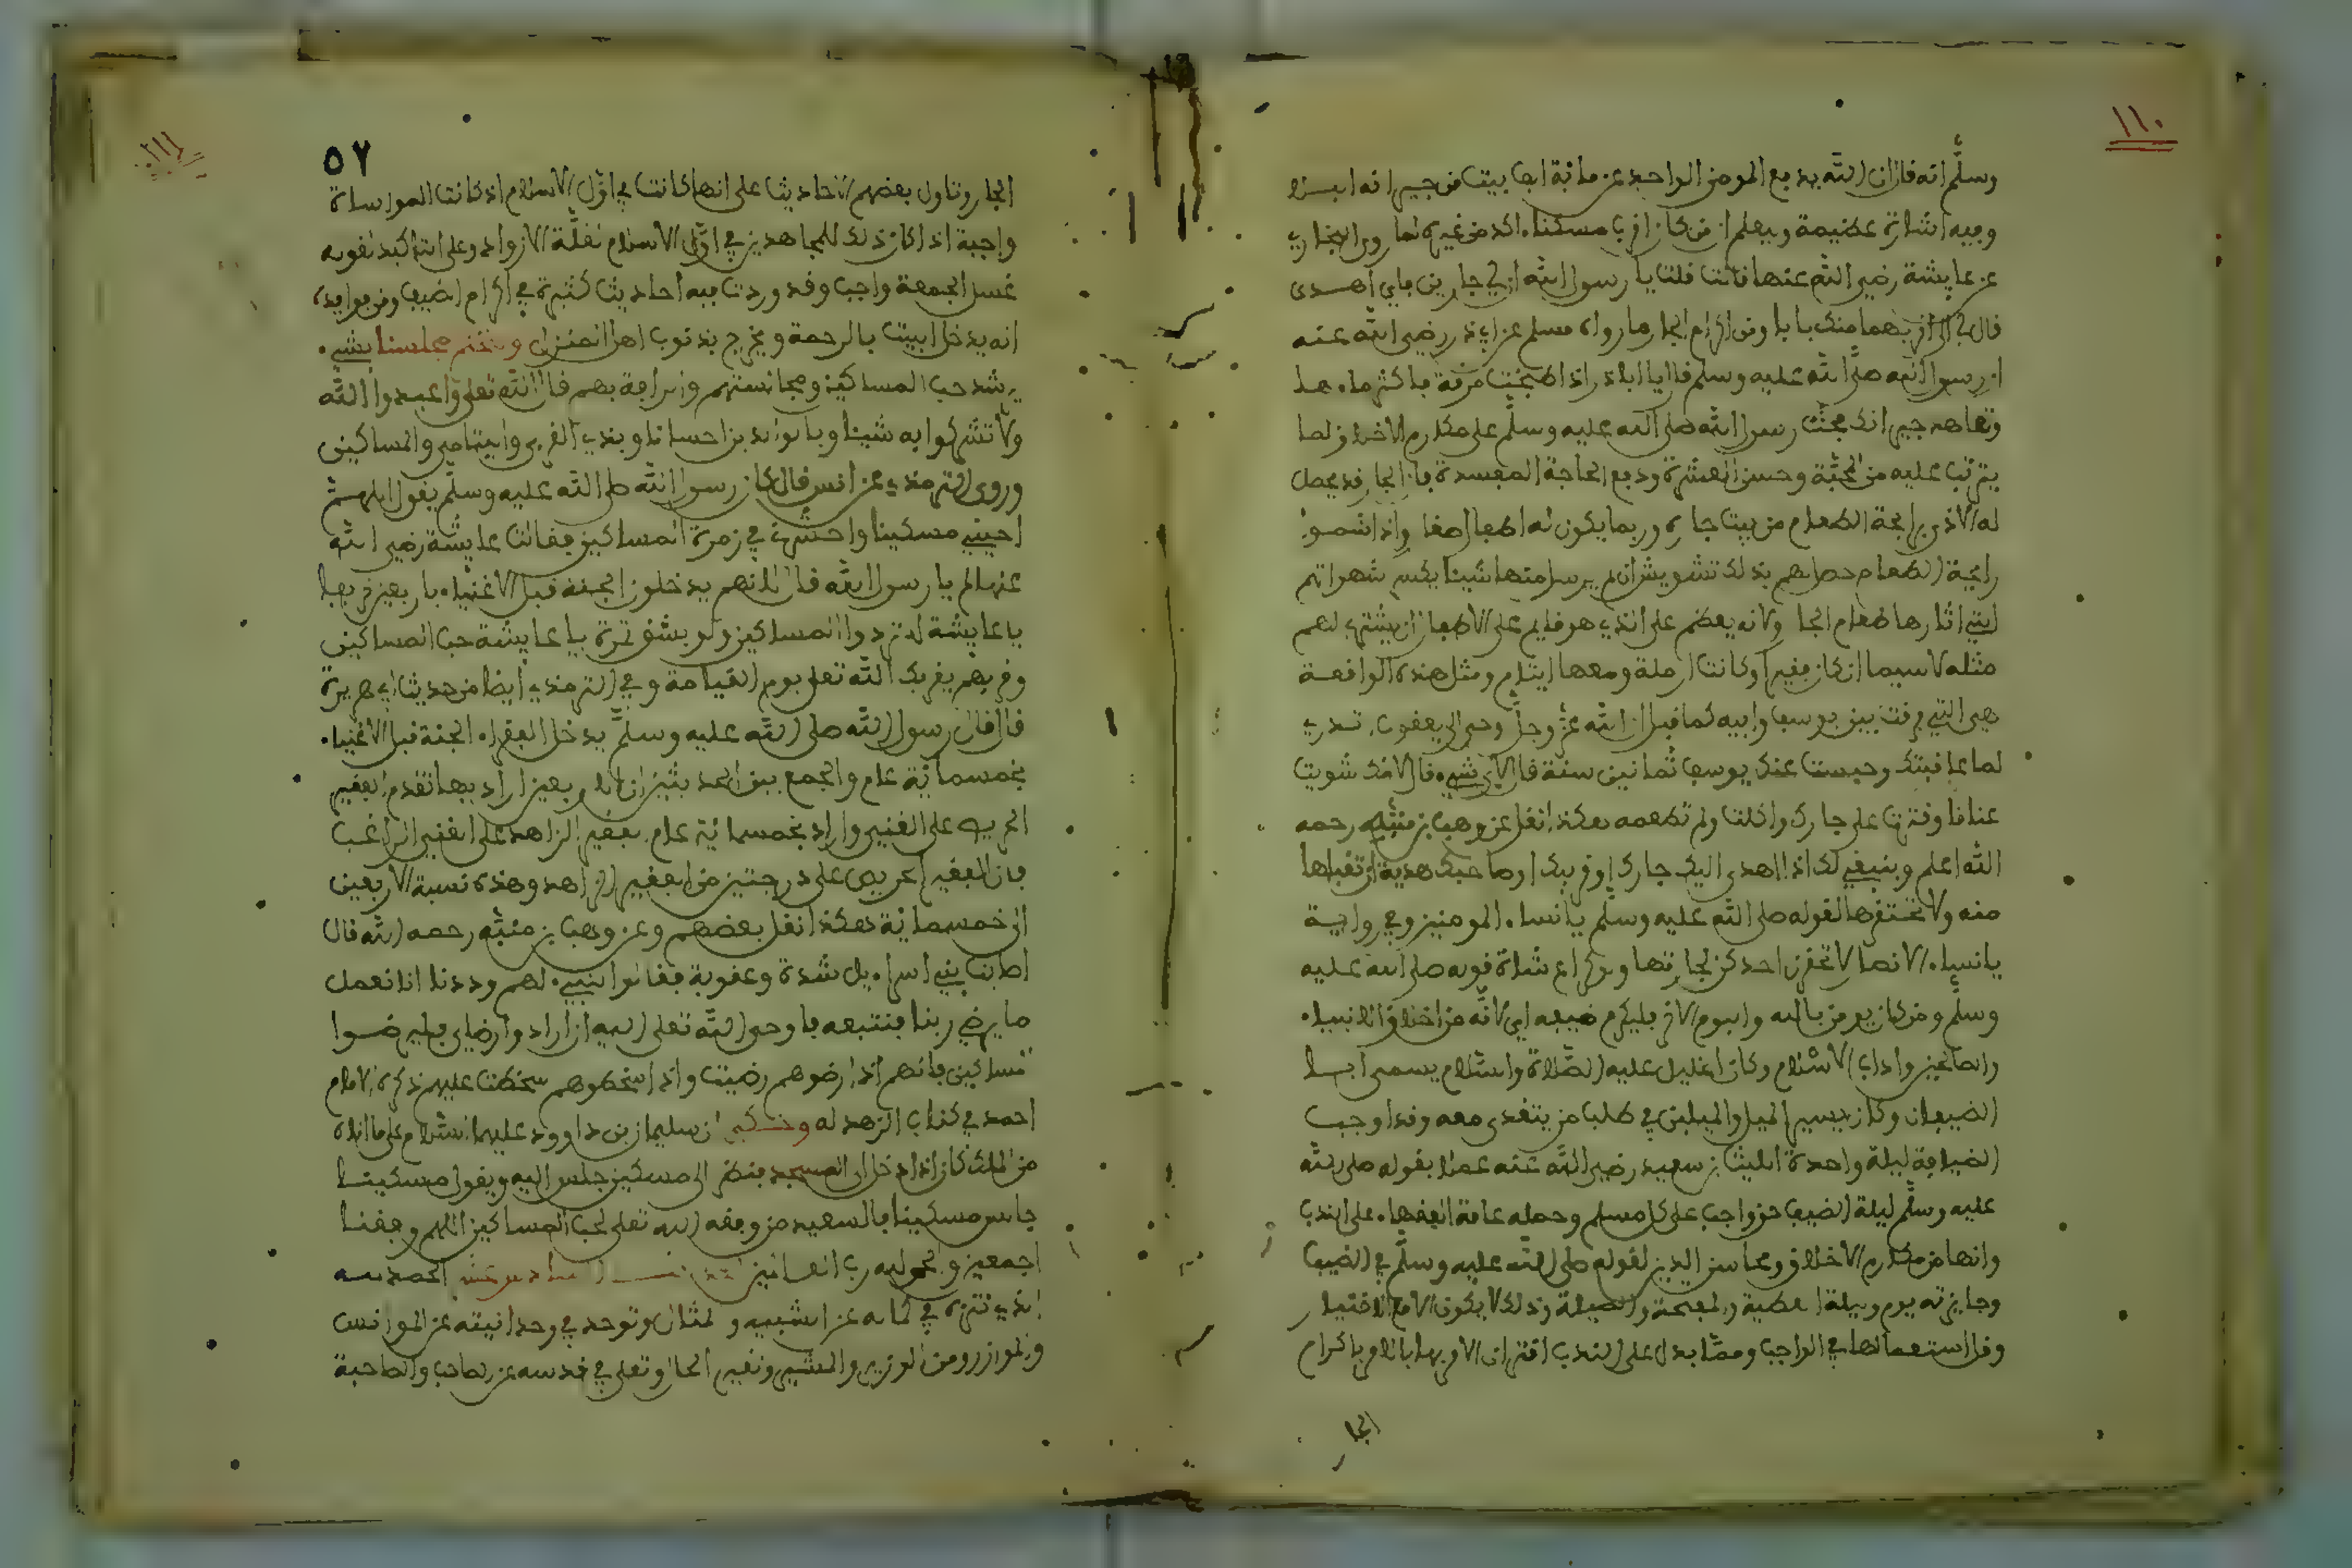 ١١٠
وسلّم انه قال ان الله يدفع بالمومن الواحد عن مائة اهل بيت من جيرانه البلا
وفيه اشارة عظيمة ويعلم ان من كان اقرب مسكنا اكد من غيره لما روى البخاري
عن عايشة رضي الله عنها قالت قلت يا رسول الله ان لي جارين فالى ايهما اهدى
قال الى اقربهما منك بابا ومن اكرام الجار ما رواه مسلم عن ابي ذر رضي الله عنه
ان رسول الله صلى الله عليه وسلم قال يا ابا ذر اذا طبخت مرقة فاكثر ماءها
وتعاهد جيرانك فحثّ رسول الله صلى الله عليه وسلّم على مكارم الاخلاق لما
يترتب عليه من المحبّة وحسن العشرة ودفع الحاجة المفسدة فان الجار قد يحصل
له الاذى برايحة الطعام من بيت جاره وربما يكون له اطفال صغار واذا شموا
رايحة الطعام حصل لهم بذلك تشويش ان لم يرسل منها شيئا يكسر شهواتهم
التي اثارها طعام الجار ولانه يعظم على الذي هو قايم على الاطفال ان يشتري لهم
مثله لا سيما ان كان فقيرا وكانت ارملة ومعها ايتام ومثل هذه الواقعة
هي التي فرقت بين يوسف وابيه كما قيل ان الله عزّ وجلّ اوحى الى يعقوب تدري
لما عاقبتك وحبست عنك يوسف ثمانين سنة قال لاي شيء قال لانك شويت
عناقا وقترت على جارك واكلت ولم تطعمه هكذا نقل عن وهب بن منبّه رحمه
الله اعلم وينبغي لك اذا اهدى اليك جارك او قريبك او صاحبك هدية ان تقبلها
منه ولا تحتقرها لقوله صلى الله عليه وسلّم يا نساء المومنين وفي رواية
يا نساء الانصار لا تحقرن احدكن لجارتها ولو كراع شاة قوله صلى الله عليه
وسلّم ومن كان يومن بالله واليوم الاخر فليكرم ضيفه اي لانّه من اخلاق الانبياء
والصالحين واداب الاسلام وكان الخليل عليه الصّلاة والسّلام يسمى ابا
الضيفان وكان يسير الميل والميلين في طلب من يتغدى معه وقد اوجب
الضيافة ليلة واحدة الليث بن سعيد رضي الله عنه عملا بقوله صلى الله
عليه وسلّم ليلة الضيف حق واجب على كل مسلم وحمله عامة الفقهاء على الندب
وانها من مكارم الاخلاق ومحاسن الدين لقوله صلى الله عليه وسلّم في الضيف
وجايزته يوم وليلة العطية والمنحة والصلة وذلك لا يكون الا مع الاختيار
وقل استعمالها في الواجب ومما يدل على الندب اقتران الامر بها بالامر باكرام
الجار
٥٧
الجار وتاول بعضهم الاحاديث على انها كانت في اوّل الاسلام اذ كانت المواساة
واجبة اذا كان ذلك للمجاهدين في اوّل الاسلام لقلّة الازواد وعلى التاكيد لقوله
غسل الجمعة واجب وقد وردت فيه احاديث كثيرة في اكرام الضيف ومن فوايده
انه يدخل البيت بالرحمة ويخرج بذنوب اهل المنزل ونختم مجلسنا بشيء
يرشد حب المساكين ومجالستهم والرافة بهم قال الله تعلى واعبدوا الله
ولا تشركوا به شيئا وبالوالدين احسانا وبذي القربى واليتامى والمساكين
وروى الترمذي عن انس قال كان رسول الله صلى الله عليه وسلّم يقول اللهم
احيني مسكينا واحشرني في زمرة المساكين فقالت عايشة رضي الله
عنها لم يا رسول الله قال لانهم يدخلون الجنة قبل الاغنياء باربعين خريفا
يا عايشة لا تردوا المساكين ولو بشق تمرة يا عايشة حب المساكين
وقربهم يقربك الله تعلى يوم القيامة وفي الترمذي ايضا من حديث ابي هريرة
قال قال رسول الله صلى الله عليه وسلّم يدخل الفقراء الجنة قبل الاغنياء
بخمسمائة عام والجمع بين الحديثين ان الاربعين اراد بها تقدم الفقير
الحريص على الغني واراد بخمسمائة عام فقير الزاهد على الغني الراغب
فان الفقير الحريص على درجتين من الفقير الزاهد وهذه نسبة الاربعين
الى خمسمائة هكذا نقل بعضهم وعن وهب بن منبّه رحمه الله قال
اصابت بني اسراءيل شدة وعقوبة فقالوا لنبيء لهم وددنا انا نعمل
ما يرضي ربنا فنتبعه فاوحى الله تعلى اليه ان ارادوا رضاي فليرضوا
المساكين فانهم اذا ارضوهم رضيت واذا اسخطوهم سخطت عليهم ذكره الامام
احمد في كتاب الزهد له وحكي ان سليمان بن داوود عليهما السّلام على ما اتاه
من الملك كان اذا دخل الى المسجد ينظر الى مسكين جلس اليه ويقول مسكينا
جالس مسكينا فالسعيد من وفقه الله تعلى لحب المساكين اللهم وفقنا
اجمعين والحمد لله رب العالمين الحمد لله
الذي تنزه في كماله عن الشبيه والمثال وتوحد في وحدانيته عن الموانس
والموازر ومن الوزير والمشير وتغير الحال وتعلى في قدسه عن الصاحب والصاحبة